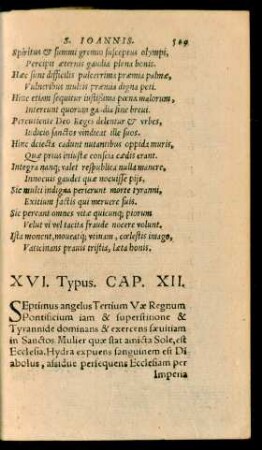 S. IOANNIS. 589
Spiritus & summi gremio susceptus olympi,
Percipit æternis gaudia plena bonis.
Hæc sunt difficilis pulcerrima præmia palmæ,
Vulneribus multis præmia digna peti.
Hinc etiam sequitur iustißima pœna malorum,
Intereunt quorum gaudia fine breui.
Percutiente Deo Reges delentur & vrbes,
Iudicio sanctos vindicat ille suos.
Hinc deiecta cadunt nutantibus oppida muris,
Quæ prius iniustæ conscia cædis erant.
Integra nunq; valet respublica nulla manere,
Innocuis gaudet quæ nocuisse pijs.
Sic multi indigna perierunt morte tyranni,
Exitium factis qui meruere suis.
Sic pereant omnes vitæ quicunq; piorum
Velut vi vel tacita fraude nocere volunt.
Ista monent, moueatq; vtinam, cœlestis imago,
Vaticinans prauis tristia, læta bonis.
XVI. Typus. CAP. XII.
SEptimus angelus Tertium Væ Regnum
Pontificium iam & superstitione &
Tyrannide dominans & exercens sæuitiam
in Sanctos. Mulier quæ stat amicta Sole, est
Ecclesia. Hydra expuens sanguinem est Di
abolus, assidue persequens Ecclesiam per
Imperia